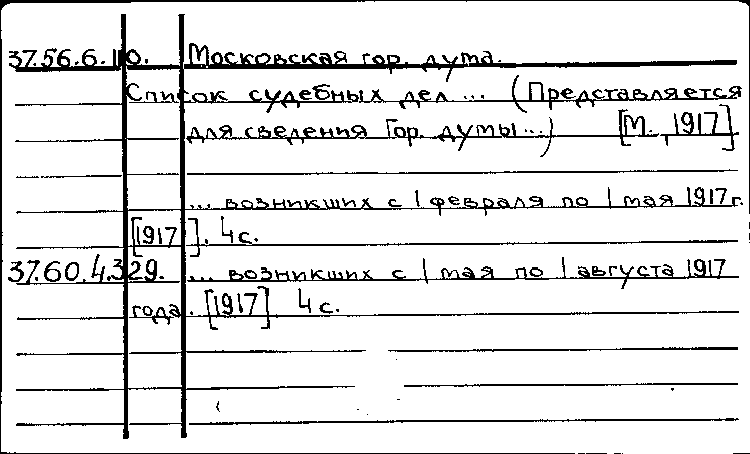 37.56.6.110. Московская гор. дума.
Список судебных дел... (Представляется
для сведения Гор. думы...) [М., 1917]
... возникших с 1 февраля по 1 мая 1917 г.
[1917]. 4 с.
37.60.4.329. ... возникших с 1 мая по 1 августа 1917
года. [1917] 4 с.